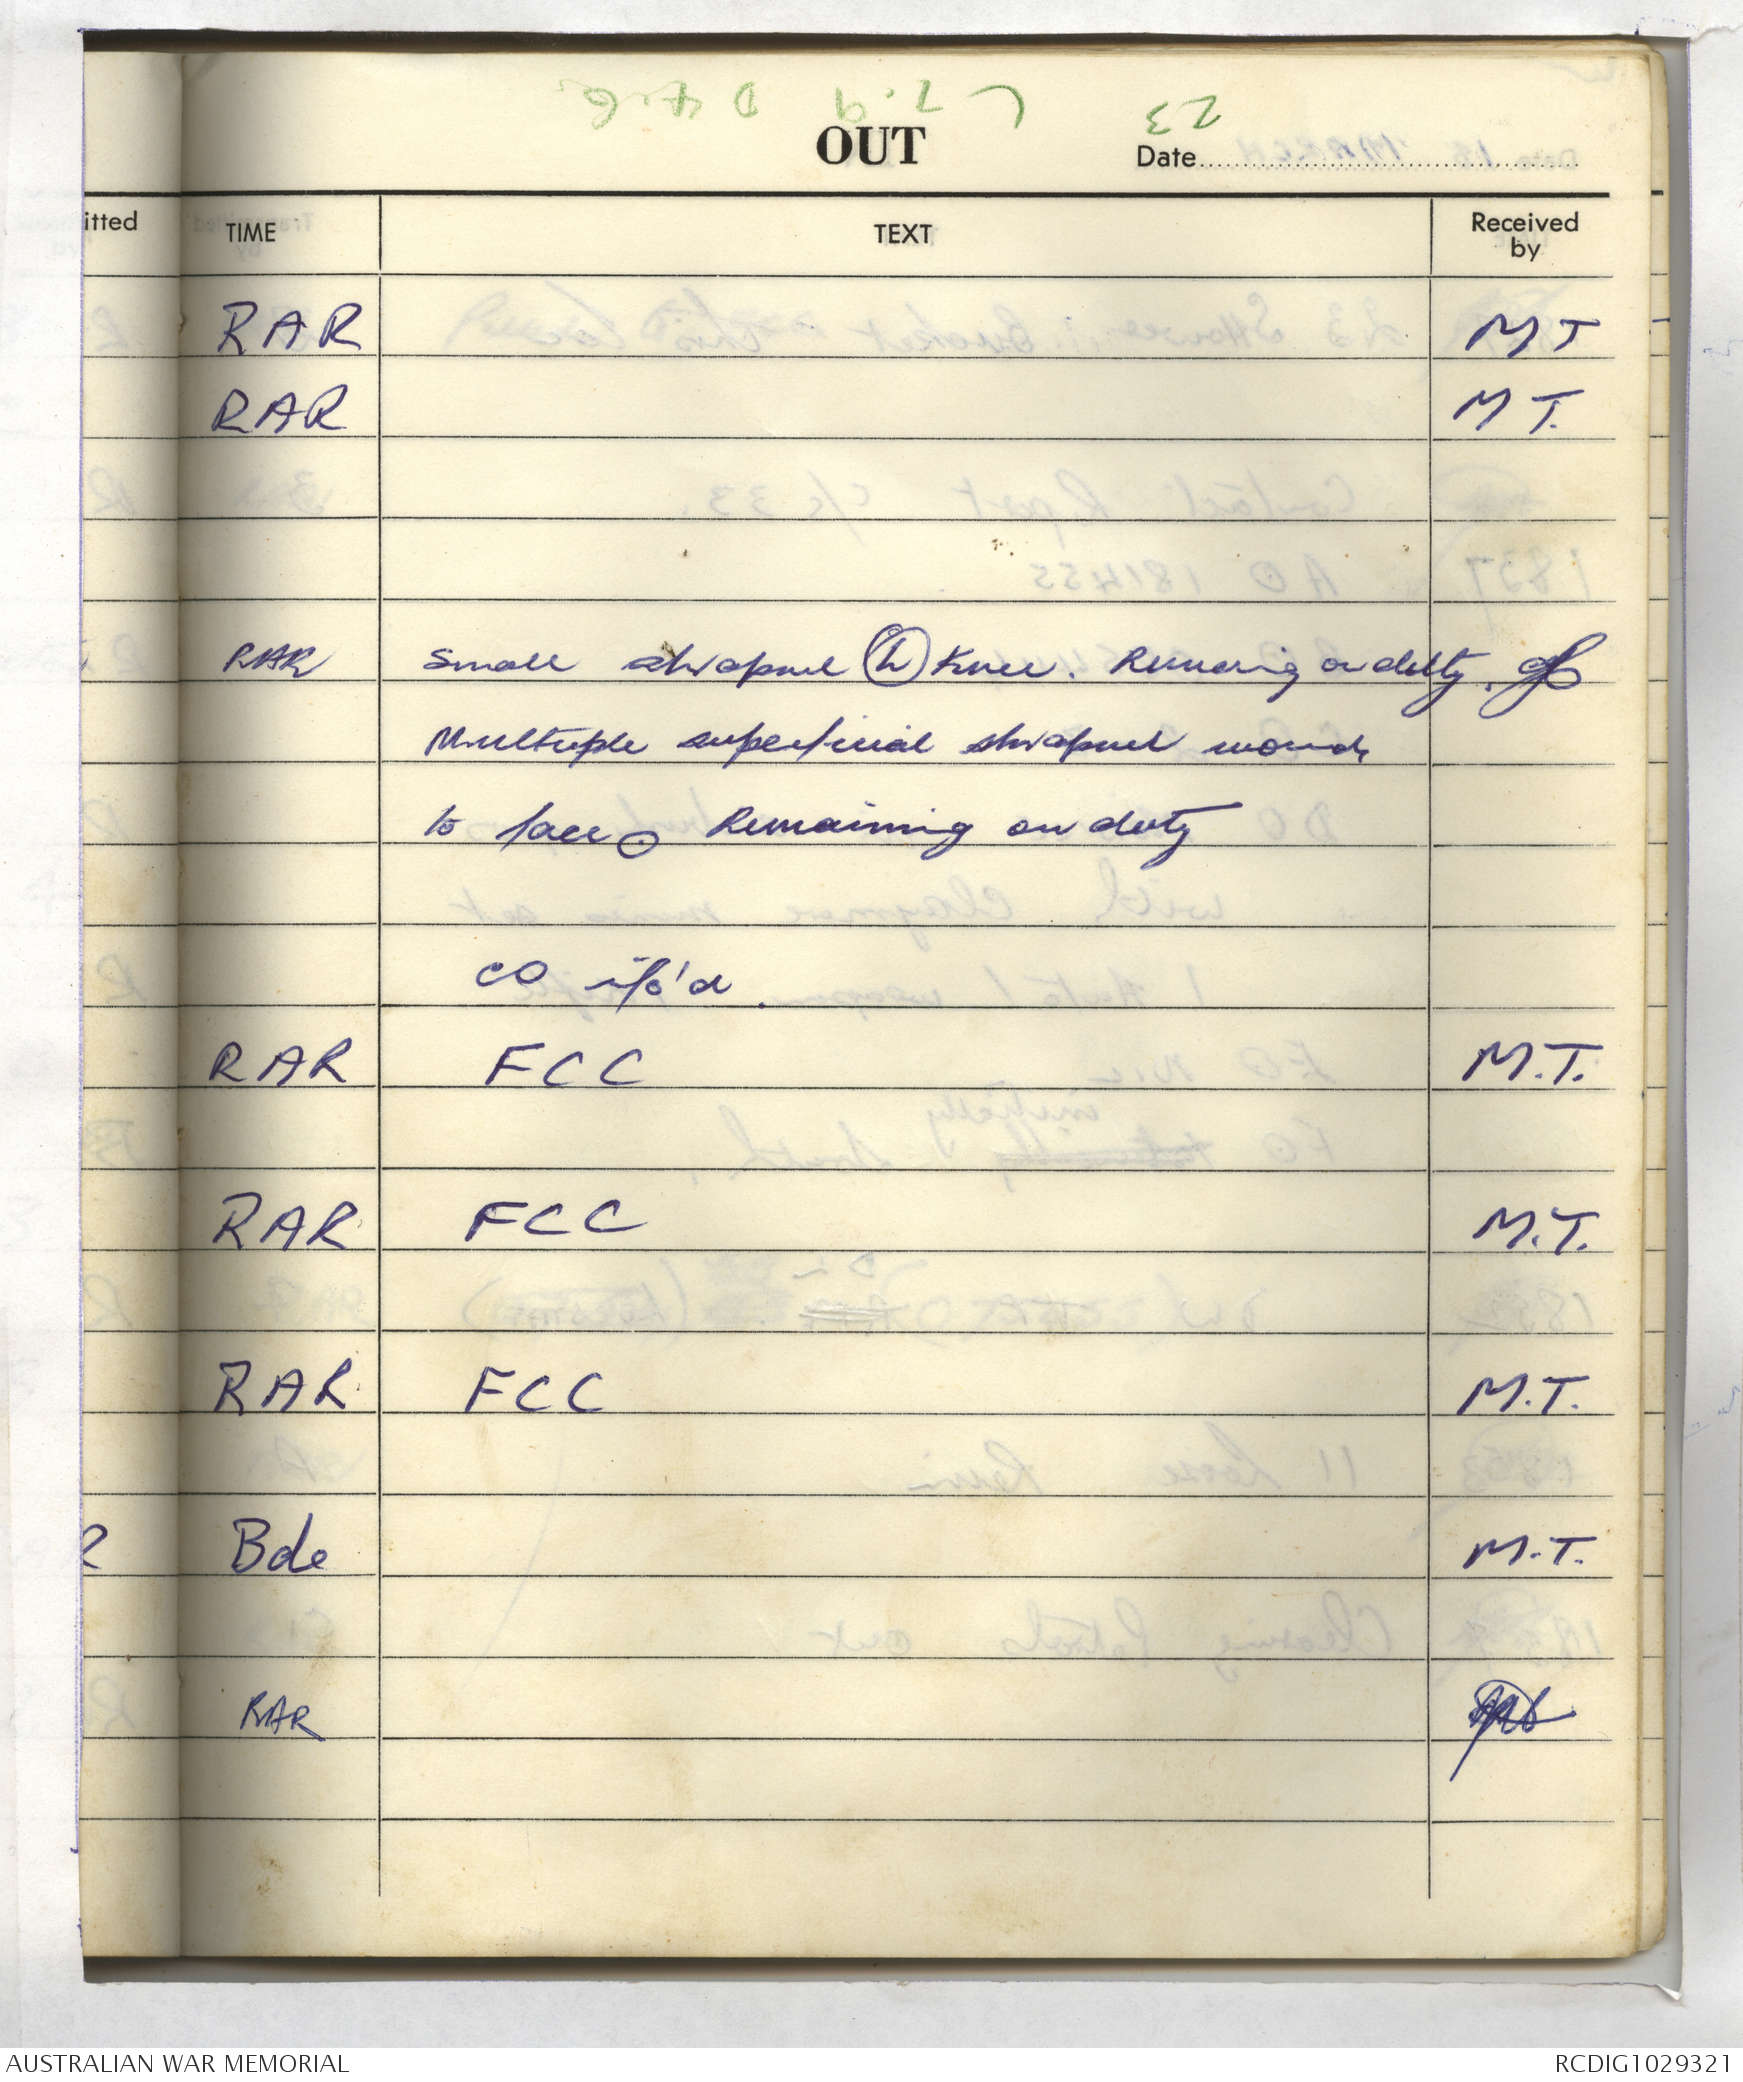 OUT
23
Date
itted
TIME
TEXT
Received
by
RAR
MT
RAR
MT.
RAR
Small shrapnel (L) knee. Remaing on duty.
Multiple superficial shrapnel wounds
to face. Remaining on duty
CO info'd.
RAR
FCC
M.T.
RAR
FCC
M.T.
RAR
FCC
M.T.
R
Bde
M.T.
RAR
AUSTRALIAN WAR MEMORIAL
RCDIG1029321